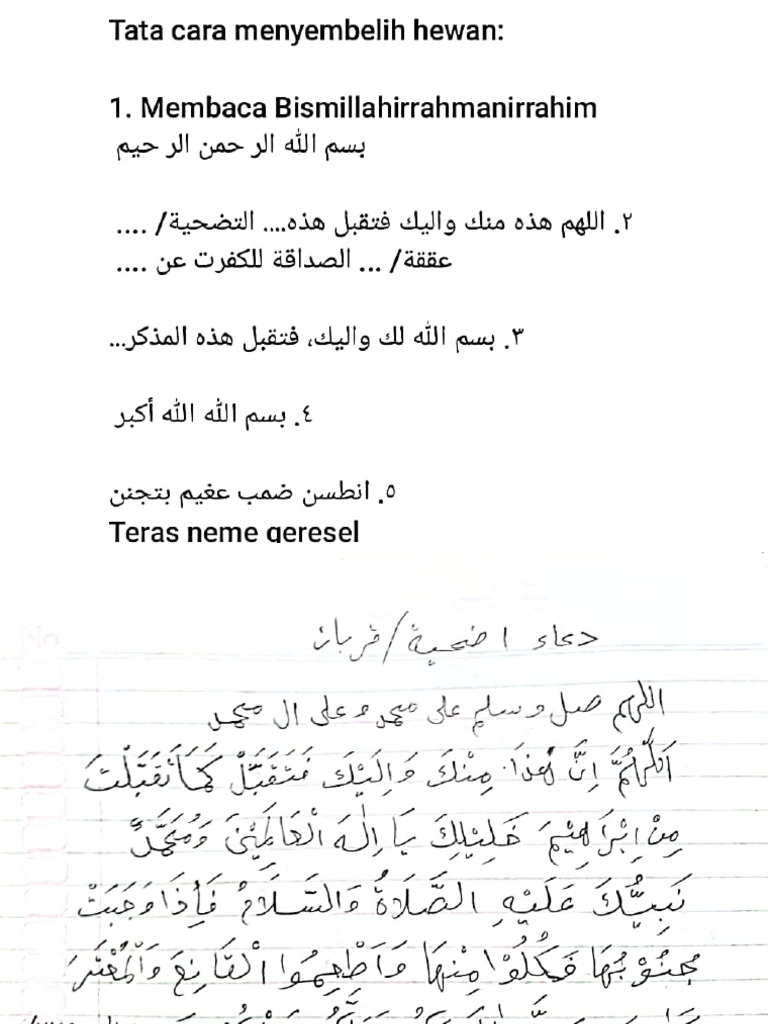 Tata cara menyembelih hewan:
1. Membaca Bismillahirrahmanirrahim
بسم الله الر حمن الر حيم
٢. اللهم هذه منك واليك فتقبل هذه.... التضحية/ ....
عققة/ ... الصداقة للكفرت عن ....
٣. بسم الله لك واليك، فتقبل هذه المذكر...
٤. بسم الله الله أكبر
٥. انطسن ضمب عغيم بتجنن
Teras neme geresel
دعاء اضحية/قربان
اللهم صل وسلم على محمد وعلى ال محمد
اَللّٰهُمَّ اِنَّ هٰذَا مِنْكَ وَاِلَيْكَ فَتَقَبَّلْ كَمَا تَقَبَّلْتَ
مِنْ اِبْرَاهِيْمَ خَلِيْلِكَ يَا اِلٰهَ الْعَالَمِيْنَ وَمُحَمَّدٌ
نَبِيُّكَ عَلَيْهِ الصَّلَاةُ وَالسَّلَامُ فَإِذَا وَجَبَتْ
جُنُوْبُهَا فَكُلُوْا مِنْهَا وَاَطْعِمُوا الْقَانِعَ وَالْمُعْتَرَّ